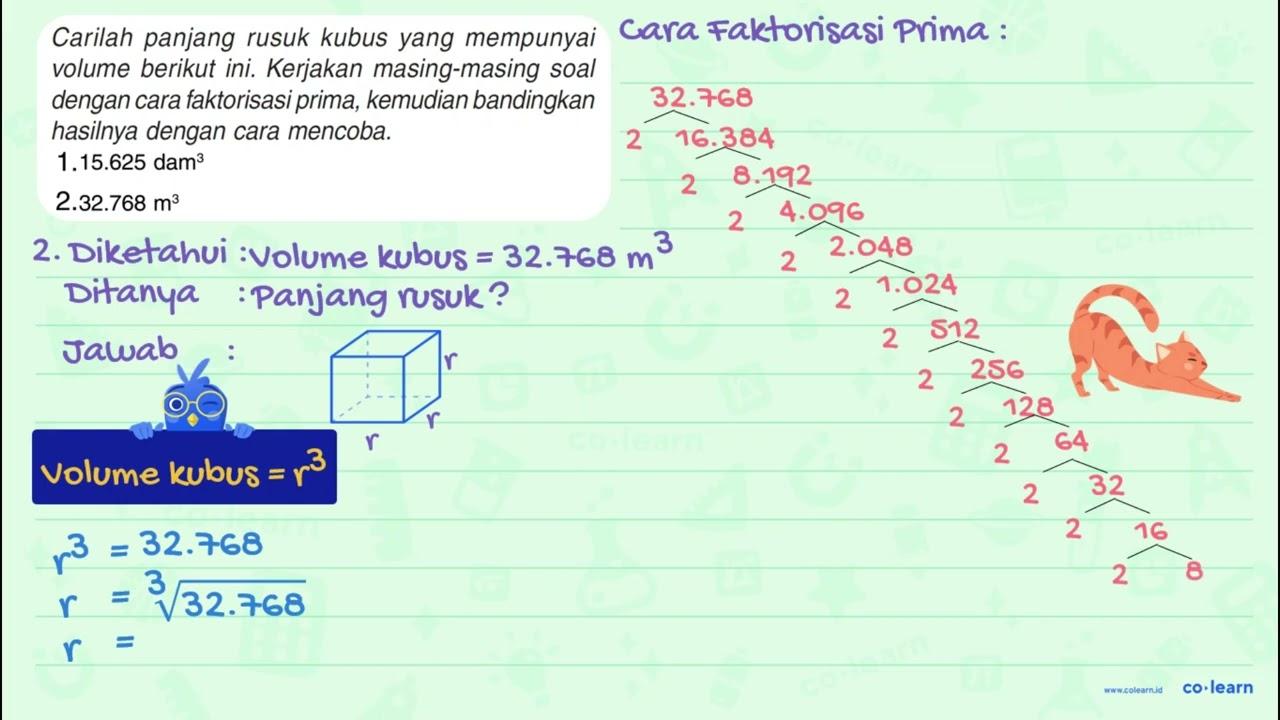 Carilah panjang rusuk kubus yang mempunyai
volume berikut ini. Kerjakan masing-masing soal
dengan cara faktorisasi prima, kemudian bandingkan
hasilnya dengan cara mencoba.
1.15.625 dam³
2.32.768 m³
2. Diketahui : Volume kubus = 32.768 m³
Ditanya : Panjang rusuk?
Jawab :
r
r
r
Volume kubus = r³
r³ = 32.768
r = ³√32.768
r =
Cara Faktorisasi Prima :
32.768
2 16.384
2 8.192
2 4.096
2 2.048
2 1.024
2 512
2 256
2 128
2 64
2 32
2 16
2 8
co·learn
co·learn
co·learn
co·learn
co·learn
www.colearn.id co·learn